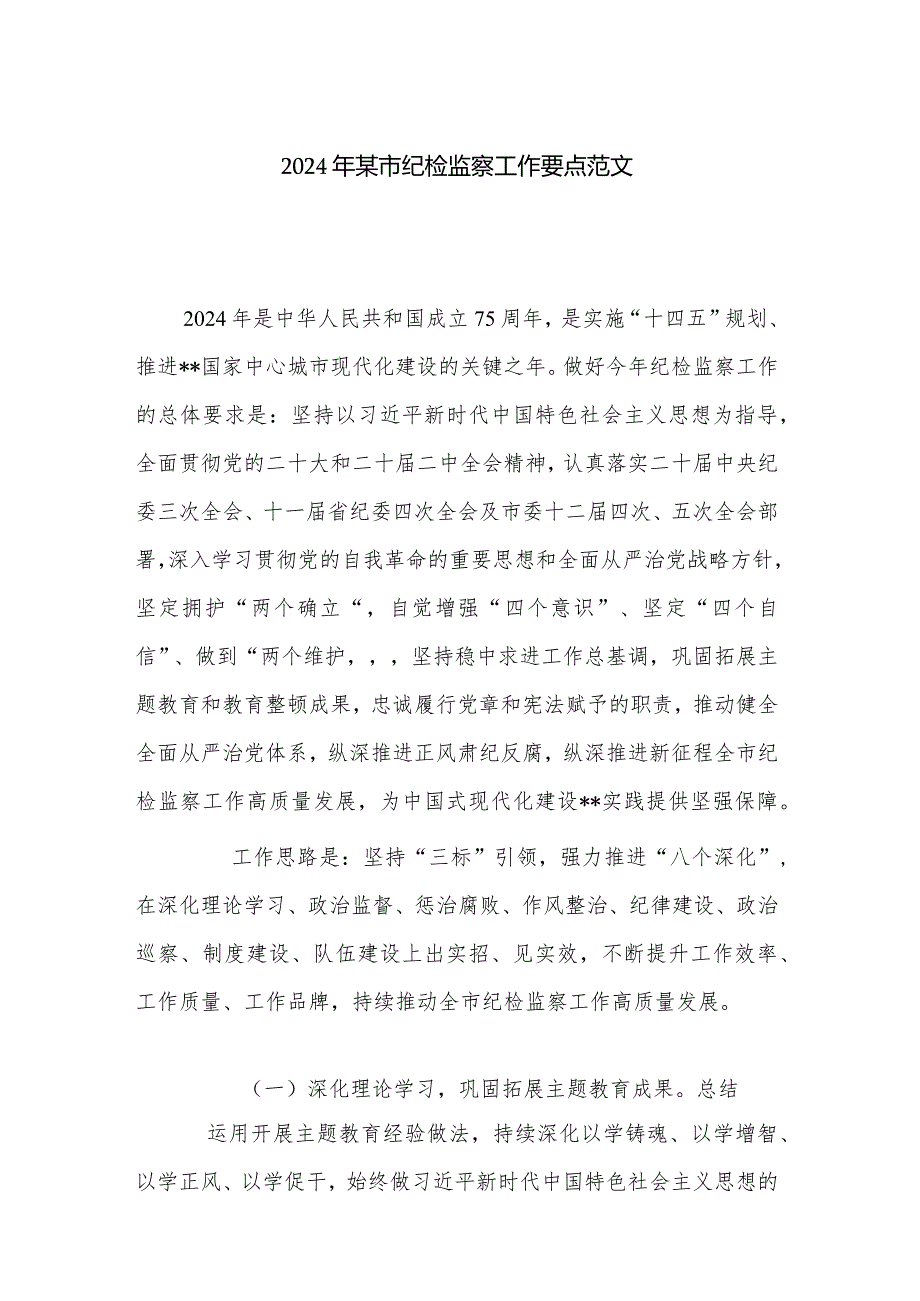 2024年某市纪检监察工作要点范文
2024年是中华人民共和国成立75周年，是实施“十四五”规划、
推进**国家中心城市现代化建设的关键之年。做好今年纪检监察工作
的总体要求是：坚持以习近平新时代中国特色社会主义思想为指导，
全面贯彻党的二十大和二十届二中全会精神，认真落实二十届中央纪
委三次全会、十一届省纪委四次全会及市委十二届四次、五次全会部
署，深入学习贯彻党的自我革命的重要思想和全面从严治党战略方针，
坚定拥护“两个确立“，自觉增强“四个意识”、坚定“四个自
信”、做到“两个维护，，，坚持稳中求进工作总基调，巩固拓展主
题教育和教育整顿成果，忠诚履行党章和宪法赋予的职责，推动健全
全面从严治党体系，纵深推进正风肃纪反腐，纵深推进新征程全市纪
检监察工作高质量发展，为中国式现代化建设**实践提供坚强保障。
工作思路是：坚持“三标”引领，强力推进“八个深化”，
在深化理论学习、政治监督、惩治腐败、作风整治、纪律建设、政治
巡察、制度建设、队伍建设上出实招、见实效，不断提升工作效率、
工作质量、工作品牌，持续推动全市纪检监察工作高质量发展。
（一）深化理论学习，巩固拓展主题教育成果。总结
运用开展主题教育经验做法，持续深化以学铸魂、以学增智、
以学正风、以学促干，始终做习近平新时代中国特色社会主义思想的